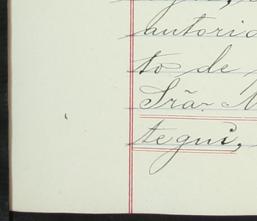 autorid
to de
Srã. M
tegui,